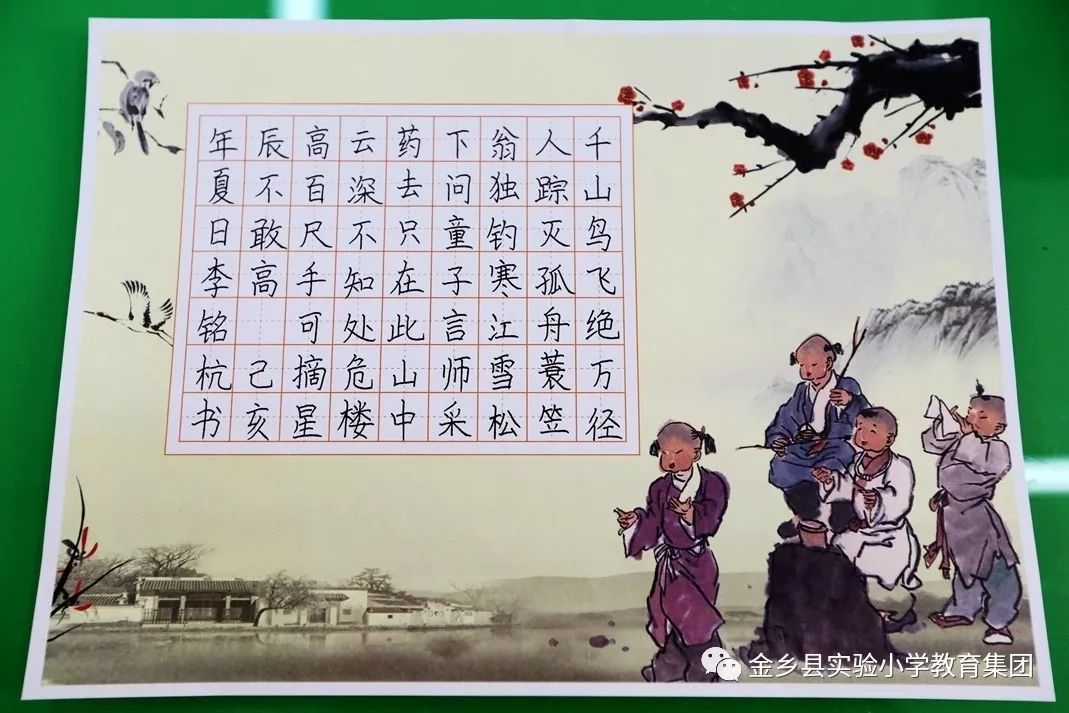 千山鸟飞绝万径
人踪灭孤舟蓑笠
翁独钓寒江雪松
下问童子言师采
药去只在此山中
云深不知处危楼
高百尺手可摘星
辰不敢高 己亥
年夏日李铭杭书
金乡县实验小学教育集团